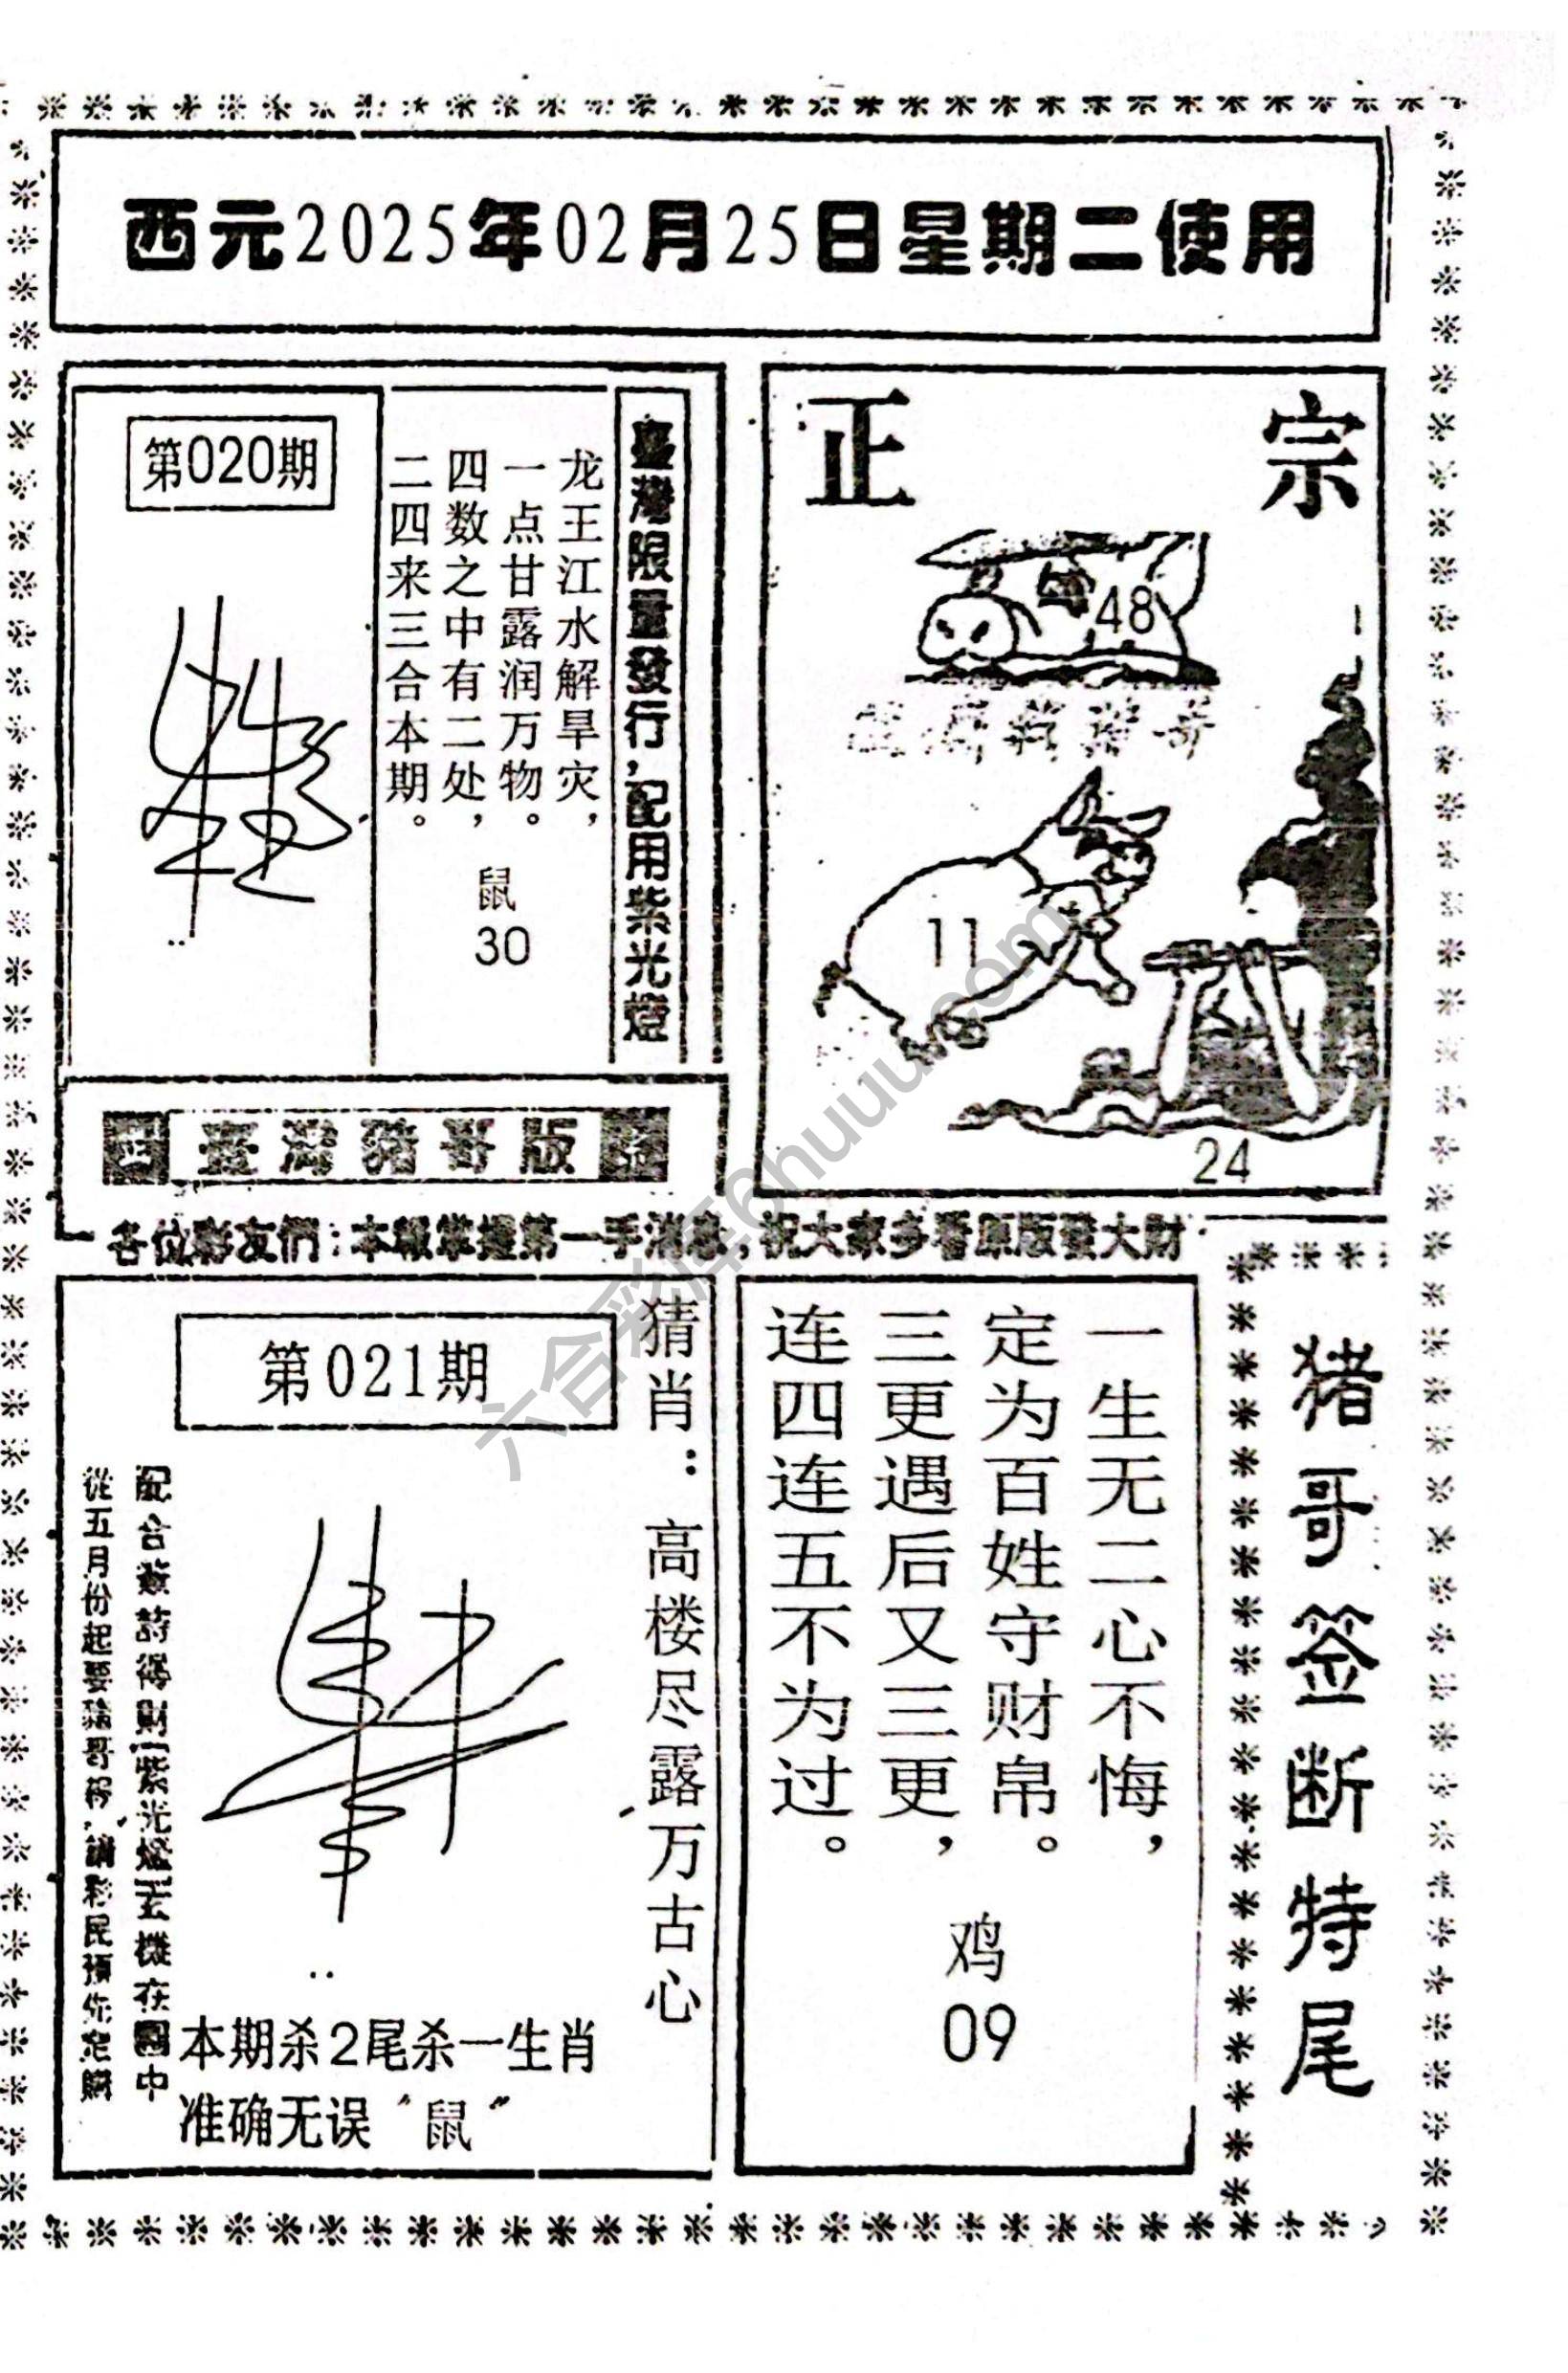 西元2025年02月25日星期二使用
第020期
龙王江水解旱灾，
一点甘露润万物。
四数之中有二处，
二四来三合本期。
鼠
30
臺灣限量發行，配用紫光燈
正宗
48
11
24
臺灣豬哥版
各位彩友們：本報掌握第一手消息，祝大家多看原版發大財
第021期
猜肖：高楼尽露万古心
本期杀2尾杀一生肖
准确无误“鼠”
一生无二心不悔，
定为百姓守财帛。
三更遇后又三更，
连四连五不为过。
鸡
09
猪哥签断特尾
六合彩库6huuu.com